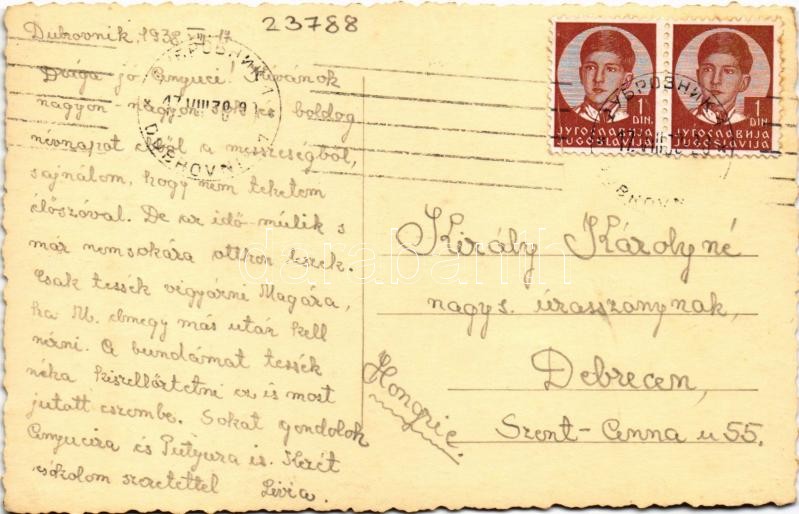 23788
Dubrovnik, 1938. VIII. 17
Drága jó Anyuci! Kívánok
nagyon-nagyon sok és boldog
névnapot ebből a messzeségből,
sajnálom, hogy nem tehetem
élőszóval. De az idő múlik s
már nemsokára otthon leszek.
Csak tessék vigyázni Magára,
ha M. elmegy más után kell
nézni. A bundámat tessék
néha kiszellőztetni ez is most
jutott eszembe. Sokat gondolok
Anyucira és Putyura is. Kezét
csókolom szeretettel Livia.
1 DIN.
ЈУГОСЛАВИЈА
JUGOSLAVIJA
1 DIN.
ЈУГОСЛАВИЈА
JUGOSLAVIJA
ДУБРОВНИК 1
17.VIII 38
DUBROVNIK 1
Király Károlyné
nagys. úrasszonynak,
Debrecen,
Szent-Anna u 55.
Hongrie.
darabanth